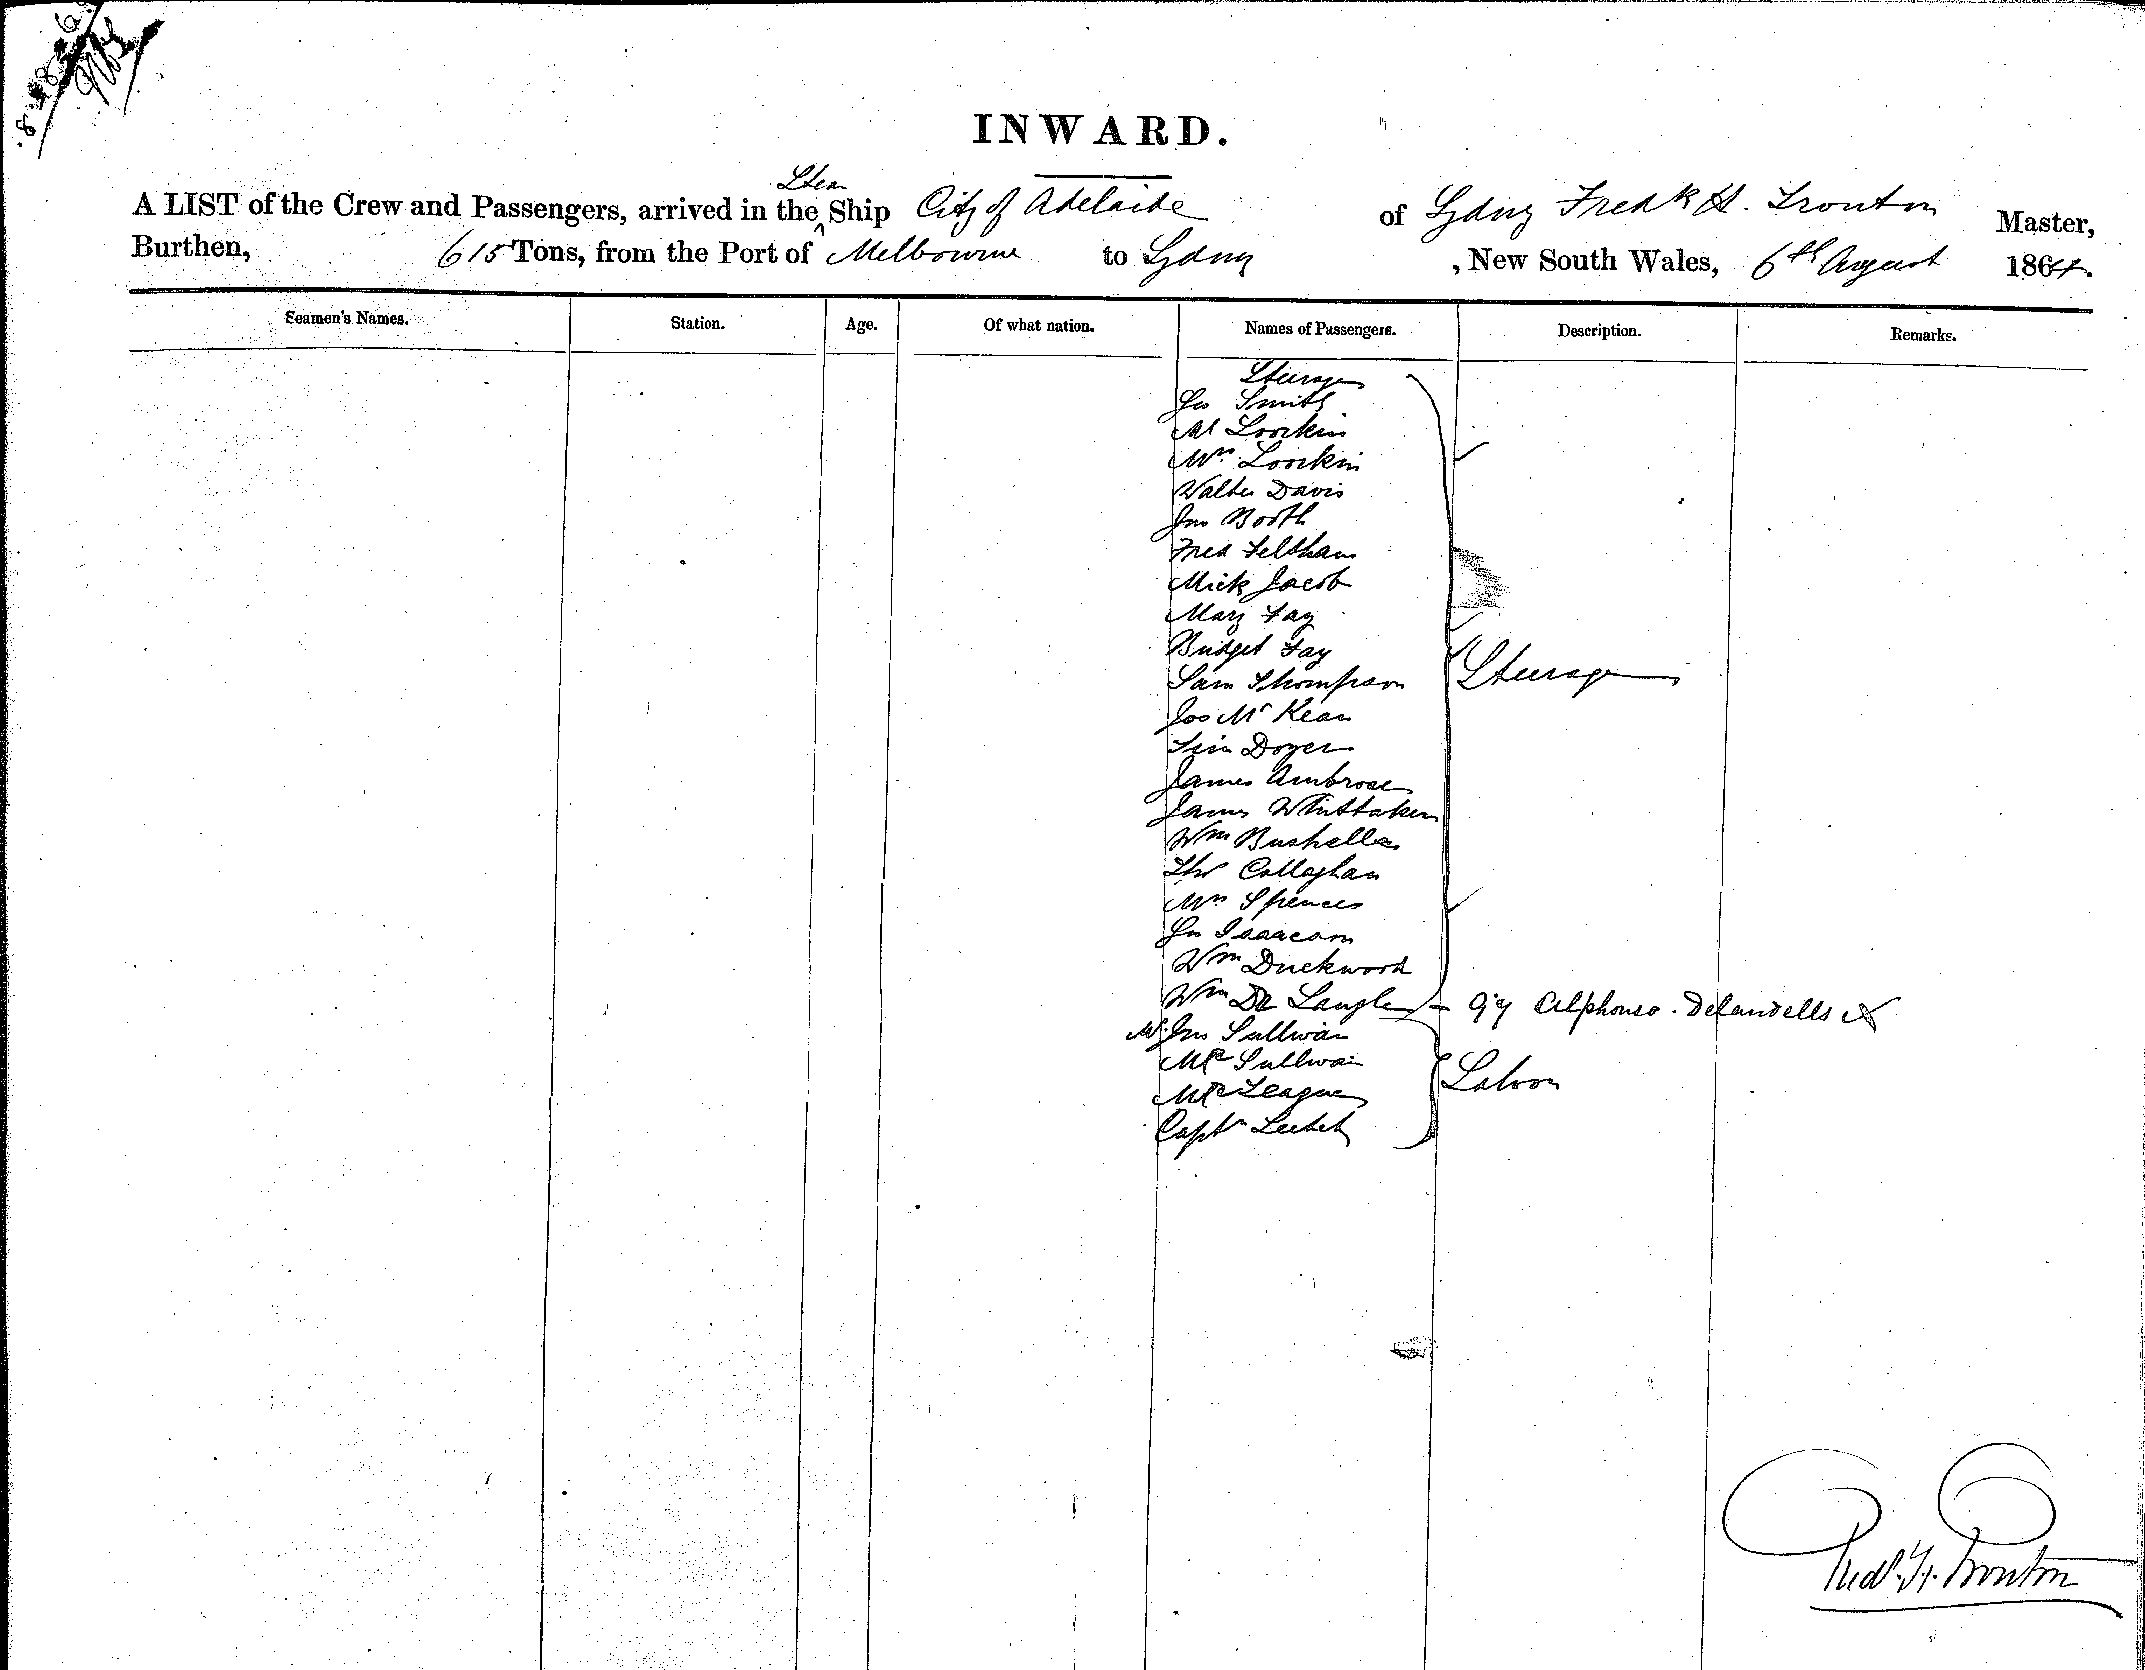 INWARD.
Steam
A LIST of the Crew and Passengers, arrived in the Ship City of Adelaide of Sydney Fredk H. Trouton Master,
Burthen, 615 Tons, from the Port of Melbourne to Sydney , New South Wales, 6th August 1864.
Seamen's Names. Station. Age. Of what nation. Names of Passengers. Description. Remarks.
Steerage
Jno Smith
Mr Lorkin
Mrs Lorkin
Walter Davis
Jno Booth
Fred Feltham
Mick Jacob
Mary Fay
Bridget Fay
Sam Thompson Steerage
Jos McKean
Tim Doyer
James Ambrose
James Whittaker
Wm Bushelle
Thos Callaghan
Mrs Spencer
Jno Isaacson
Wm Duckworth
Wm De Langle - Alphonso. Delandells
Mr Jno Sullivan
Mrs Sullivan Saloon
Mrs League
Captn
Fredk H. Trouton